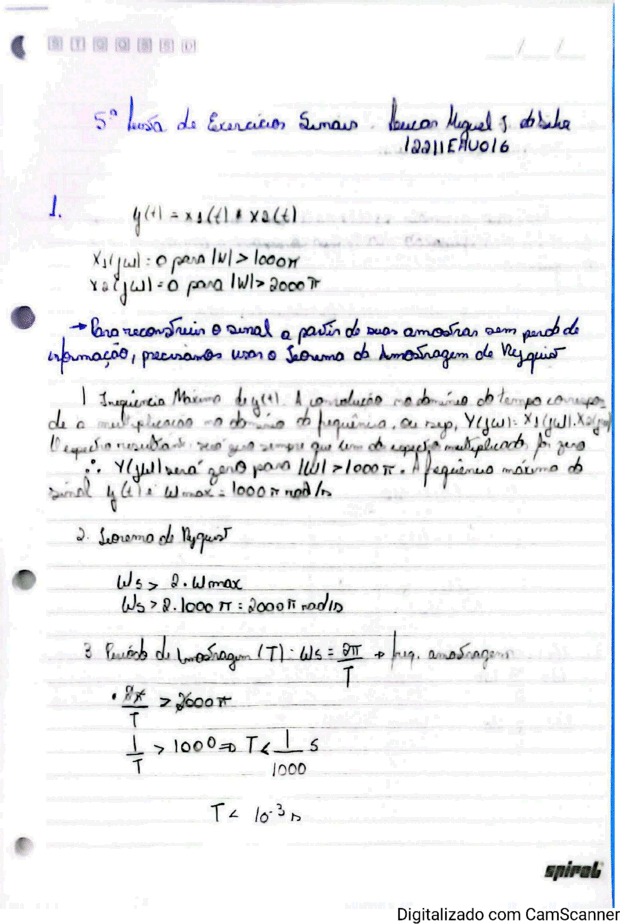 D T Q Q S S D
/ /
5ª Lista de Exercícios Sinais. Miguel S. da Silva
12211EAU016
1. y(t) = x1(t) * x2(t)
X1(jω) = 0 para |ω| > 1000π
X2(jω) = 0 para |ω| > 2000π
→ Para reconstruir o sinal a partir de suas amostras sem perda de
informação, precisamos usar o Teorema da Amostragem de Nyquist
1 Frequência Máxima de y(t). A convolução no domínio do tempo correspon
de a multiplicação no domínio da frequência, ou seja, Y(jω) = X1(jω).X2(jω)
O espectro resultante será zero sempre que um do espectro multiplicado for zero
∴ Y(jω) será zero para |ω| > 1000π. A frequência máxima do
sinal y(t) é ωmax = 1000π rad/s
2. Teorema de Nyquist
ωs > 2.ωmax
ωs > 2.1000π = 2000π rad/s
3 Período de Amostragem (T): ωs = 2π/T → freq. amostragem
• 2π/T > 2000π
1/T > 1000 ⇒ T < 1/1000 s
T < 10⁻³ s
spiral
Digitalizado com CamScanner